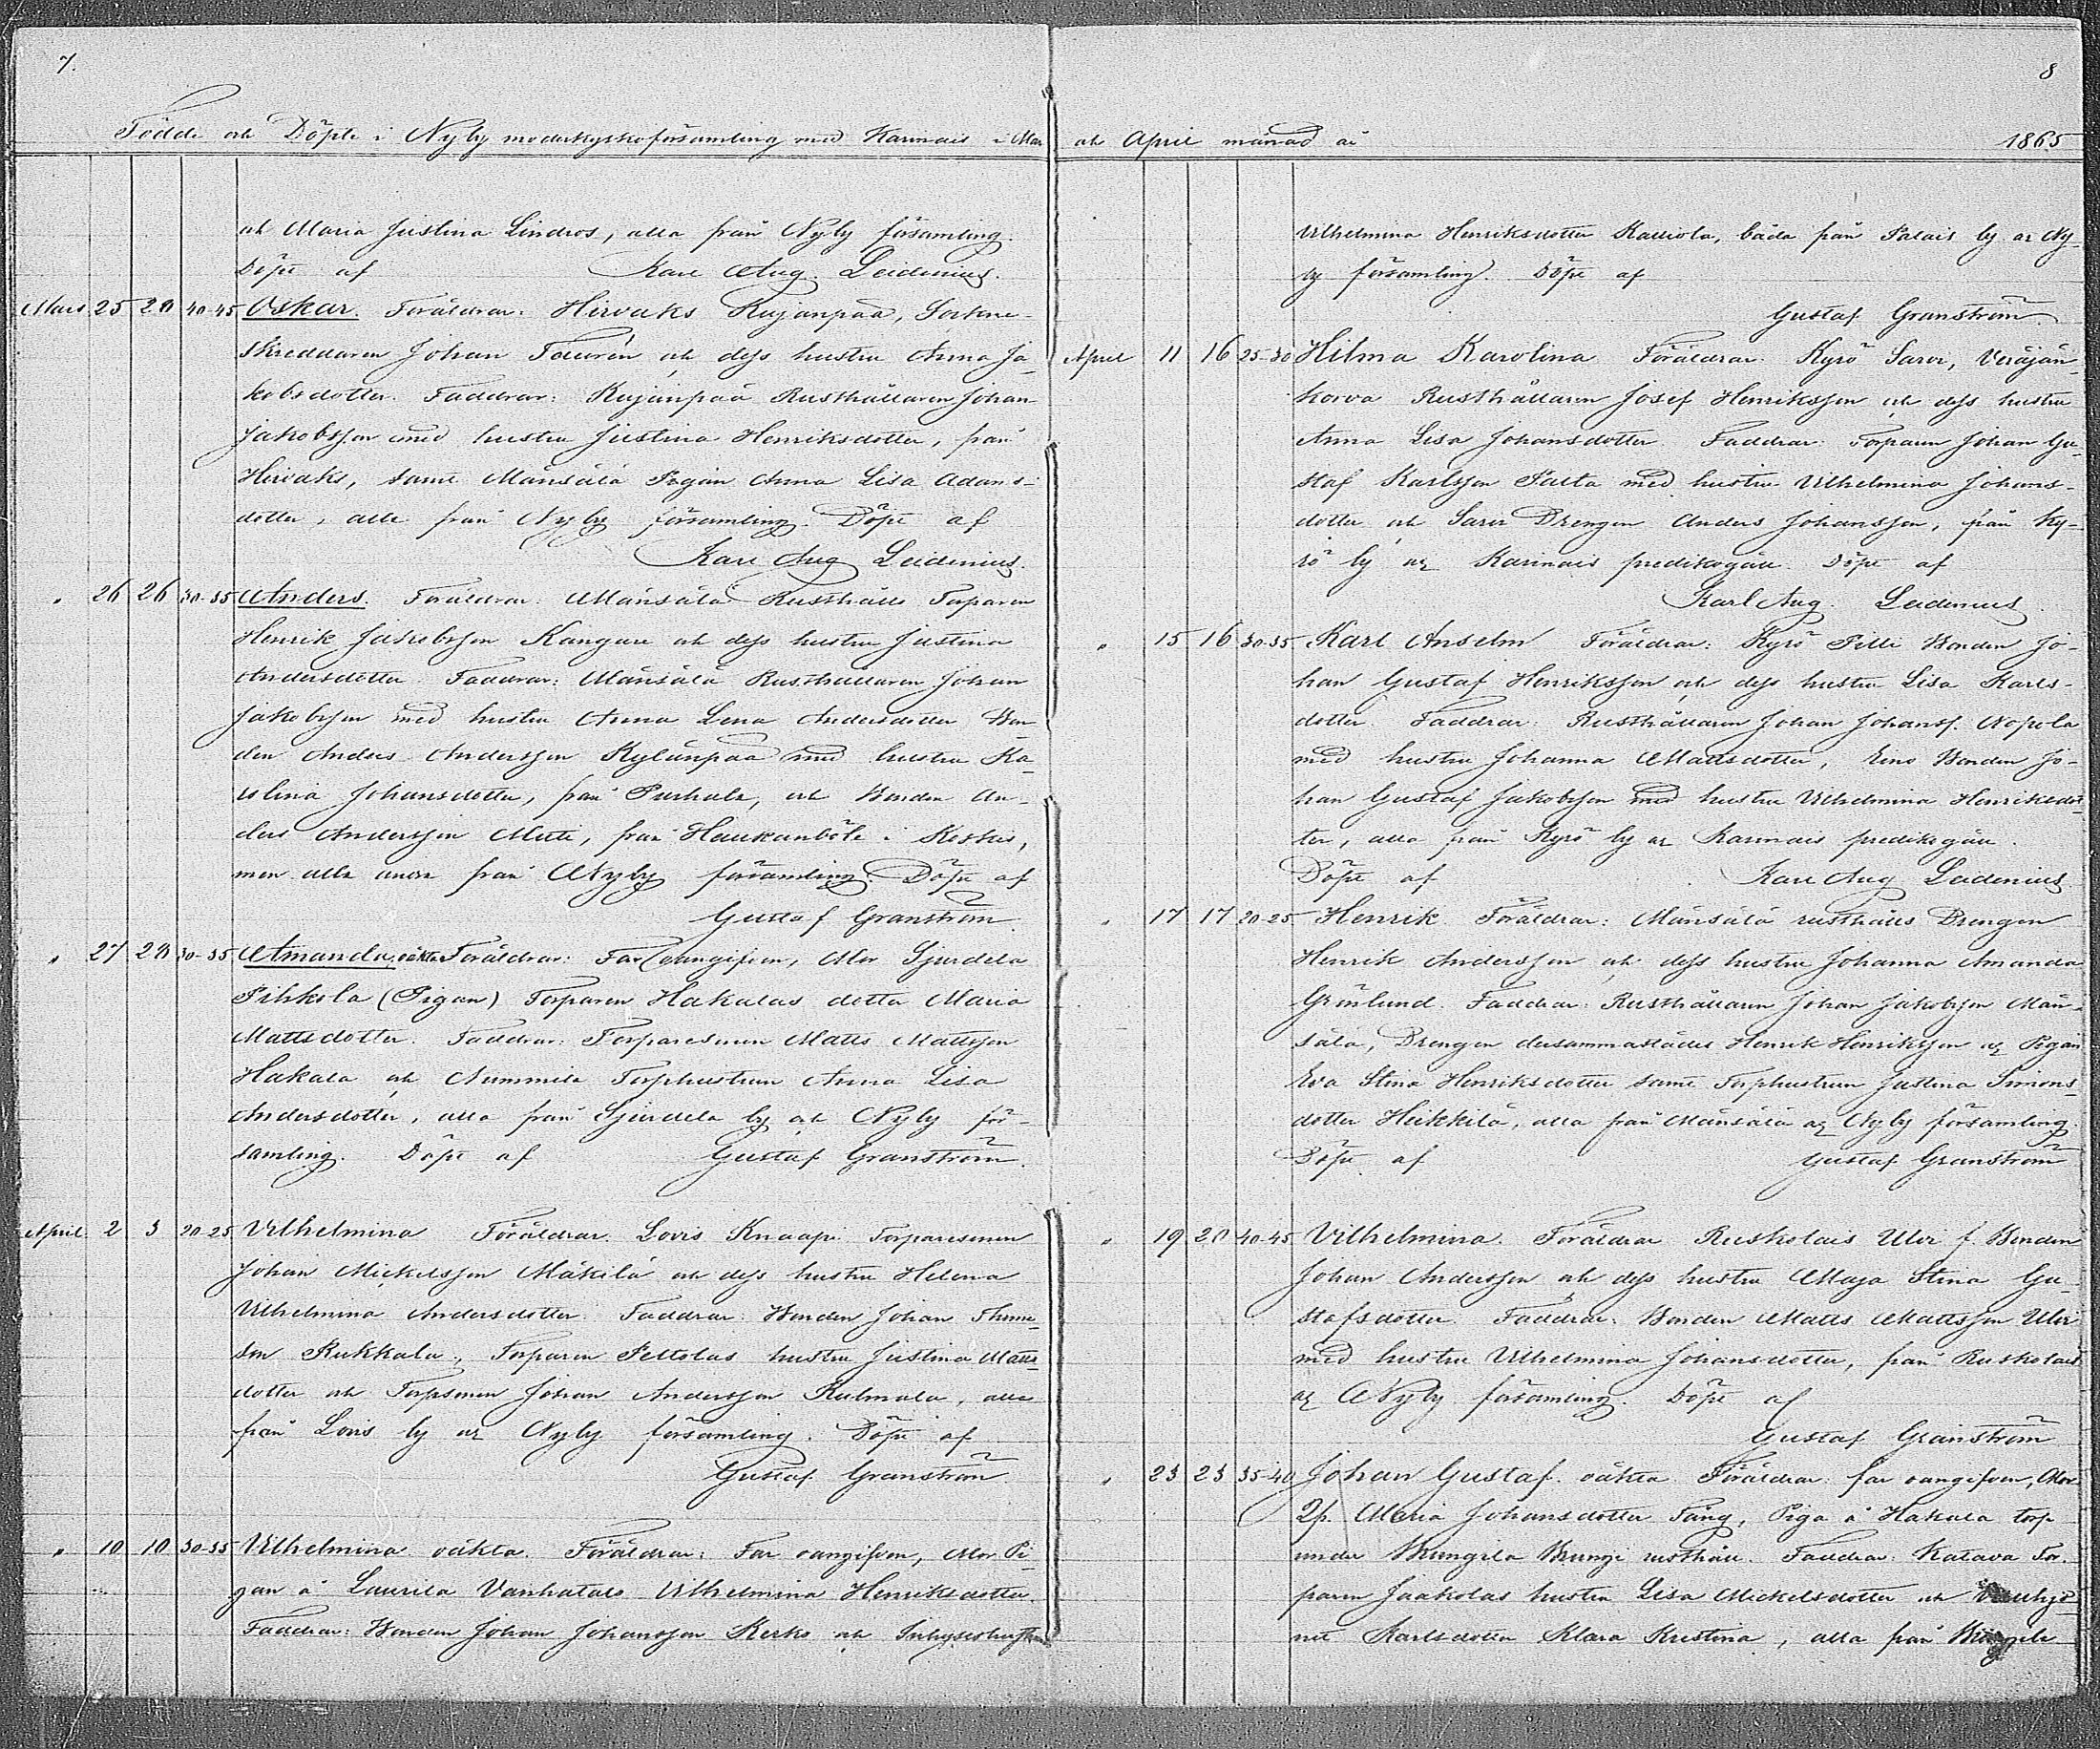 7.
Födde och Döpte i Nyby moderkyrkoförsamling med Karinais i Mar
och Maria Justina Lindros, alla från Nyby församling.
Döpt af Karl Aug. Leidenius.
Mars 25 28 40-45 Oskar. Föräldrar: Hirvaks Kujanpää, Sockne-
skreddaren Johan Taurén och dess hustru Anna Ja-
kobsdotter. Faddrar: Kujanpää Rusthållaren Johan
Jakobsson med hustru Justina Henriksdotter, från
Hirvaks, samt Mänsälä Pigan Anna Lisa Adams-
dotter, alla från Nyby församling. Döpt af
Karl Aug Leidenius.
" 26 26 30-35 Anders. Föräldrar: Mänsälä Rusthålls Torparen
Henrik Jakobsson Kangare och dess hustru Justina
Andersdotter. Faddrar: Mänsälä Rusthållaren Johan
Jakobsson med hustru Anna Lena Andersdotter Bon-
den Anders Andersson Kylänpää med hustru Ka-
rolina Johansdotter, från Purhala, och Bonden An-
ders Andersson, från Haukanböle i Koskis,
men alla andra från Nyby församling. Döpt af
Gustaf Granström.
" 27 28 30-35 Amanda, oäkta Föräldrar: Far oangifven, Mor Sjurdela
Pihkola (Pigan) Torparen Hakalas dotter Maria
Mattsdotter. Faddrar: Torparesonen Matts Mattsson
Hakala och Nummila Torphustrun Anna Lisa
Andersdotter, alla från Sjurdela by och Nyby för-
samling. Döpt af Gustaf Granström.
April 2 3 20-25 Vilhelmina Föräldrar: Lovis Knaapi Torparesonen
Johan Mickelsson Mäkilä och dess hustru Helena
Vilhelmina Andersdotter. Faddrar: Bonden Johan Thoma-
son Kukkala, Torparen Peltolas hustru Justina Matts-
dotter och Torpsonen Johan Andersson Kulmala, alla
från Lovis by ag Nyby församling. Döpt af
Gustaf Granström.
" 10 10 30-35 Vilhelmina oäkta. Föräldrar: Far oangifven, Mor Pi-
gan å Laurila Vanhatalo Vilhelmina Henriksdotter.
Faddrar: Bonden Johan Johansson Kerko och Inhyseshustrun
8
och April månad år 1865
Vilhelmina Henriksdotter Kalliola, båda från Palais by ag Ny-
by församling. Döpt af
Gustaf Granström.
April 11 16 25-30 Hilma Karolina Föräldrar: Kyrö Sarvi, Veräjän-
korva Rusthållaren Josef Henriksson och dess hustru
Anna Lisa Johansdotter. Faddrar: Torparen Johan Gu-
staf Karlsson Palta med hustru Vilhelmina Johans-
dotter och Sarvi Drengen Anders Johansson, från Ky-
rö by ag Karinais predikogäll. Döpt af
Karl Aug. Leidenius.
" 15 16 30-35 Karl Anselm Föräldrar: Kyrö Pilli Bonden Jo-
han Gustaf Henriksson och dess hustru Lisa Karls-
dotter. Faddrar: Rusthållaren Johan Johanss. Nopola
med hustru Johanna Mattsdotter, Eino Bonden Jo-
han Gustaf Jakobsson med hustru Vilhelmina Henriksdot-
ter, alla från Kyrö by ag Karinais predikogäll.
Döpt af Karl Aug Leidenius.
" 17 17 20-25 Henrik Föräldrar: Mänsälä rusthålls Drengen
Henrik Andersson och dess hustru Johanna Amanda
Grönlund. Faddrar: Rusthållaren Johan Jakobsson Män-
sälä, Drengen dersammastädes Henrik Henriksson ag Pigan
Eva Stina Henriksdotter samt Torphustrun Justina Simons-
dotter Heikkilä, alla från Mänsälä ag Nyby församling.
Döpt af Gustaf Granström
" 19 20 40-45 Vilhelmina. Föräldrar Ruskolais Ulvi f. Bonden
Johan Andersson och dess hustru Maja Stina Gu-
stafsdotter. Faddrar: Bonden Matts Mattsson Ulvi
med hustru Vilhelmina Johansdotter, från Ruskolais
ag Nyby församling. Döpt af
Gustaf Granström
" 23 23 35-40 Johan Gustaf. oäkta Föräldrar: far oangifven, Mor
Maria Johansdotter Fäng, Piga å Hakala torp
under Brungila Brungi rusthåll. Faddrar: Katava Tor-
paren Jaakolas hustru Lisa Mickelsdotter och
Karlsdotter Klara Kristina, alla från